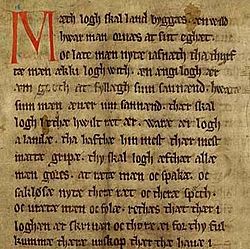 Mæth logh skal land byggæs. æn wild
hwar man orwæs at sit eghet
oc late mæn nytæ iafnæth tha thyrf
te mæn ækki logh with. æn engi logh ær
æm goth at fyllægh sum sannænd. hwaræ
sum mæn æuer um sannænd. ther skal
logh letæ hwilt ret ær. waræ æi logh
a landæ. tha hafthæ hin mest thær mest
matte gripæ. thy skal logh æfthær allæ
mæn gøres. at retæ mæn oc spakæ oc
sakløsæ nytæ theræ ret oc theræ spech.
oc uretæ mæn oc folæ. rethæs thæt thær i
loghæn ær skriuæn oc thoræ æi for thy ful
kummæ theræ unskop thær the hauæ i